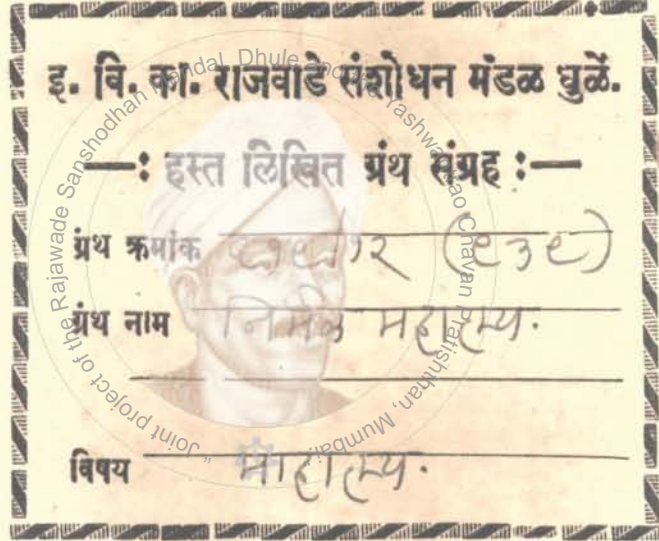 इ. वि. का. राजवाडे संशोधन मंडळ धुळें.
—: हस्त लिखित ग्रंथ संग्रह :—
ग्रंथ क्रमांक (९३९)
ग्रंथ नाम महात्म्य.
विषय माहात्म्य.
"Joint project of the Rajawade Sanshodhan Mandal, Dhule and the Yashwantrao Chavan Pratishthan, Mumbai."